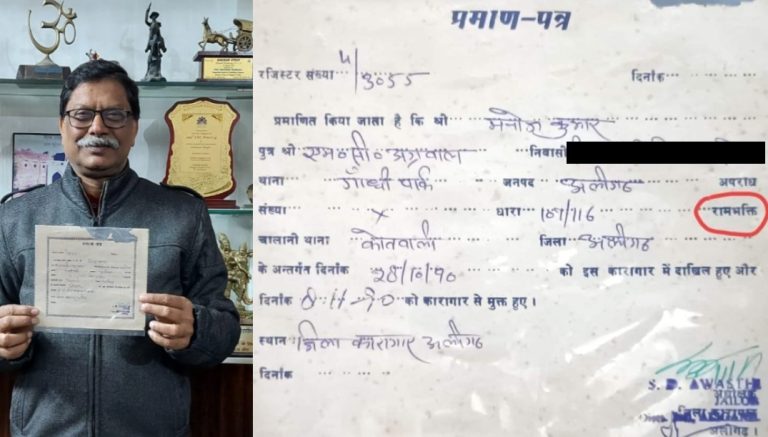 प्रमाण-पत्र
रजिस्टर संख्या 4/3055 दिनांक
प्रमाणित किया जाता है कि श्री मनोज कुमार
पुत्र श्री एम० सी० अग्रवाल निवासी
थाना गाँधी पार्क जनपद अलीगढ अपराध
संख्या × धारा 107/116 रामभक्ति
चालानी थाना कोतवाली जिला अलीगढ
के अन्तर्गत दिनांक 28/10/90 को इस कारागार में दाखिल हुए और
दिनांक 8-11-90 को कारागार से मुक्त हुए।
स्थान जिला कारागार अलीगढ
दिनांक
S. D. AWASTHI
JAILOR
जिला कारागार
अलीगढ़।